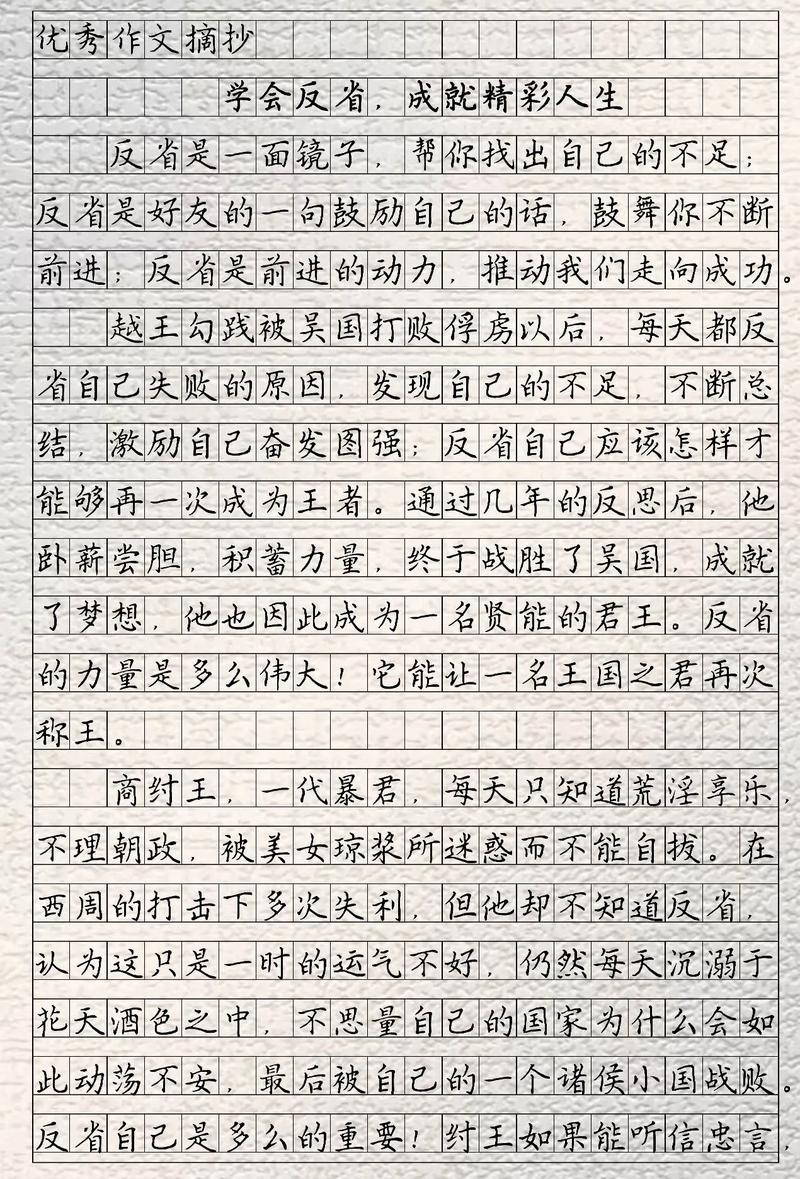 优秀作文摘抄
学会反省，成就精彩人生
反省是一面镜子，帮你找出自己的不足；
反省是好友的一句鼓励自己的话，鼓舞你不断
前进；反省是前进的动力，推动我们走向成功。
越王勾践被吴国打败俘虏以后，每天都反
省自己失败的原因，发现自己的不足，不断总
结，激励自己奋发图强；反省自己应该怎样才
能够再一次成为王者。通过几年的反思后，他
卧薪尝胆，积蓄力量，终于战胜了吴国，成就
了梦想，他也因此成为一名贤能的君王。反省
的力量是多么伟大！它能让一名王国之君再次
称王。
商纣王，一代暴君，每天只知道荒淫享乐，
不理朝政，被美女琼浆所迷惑而不能自拔。在
西周的打击下多次失利，但他却不知道反省，
认为这只是一时的运气不好，仍然每天沉溺于
花天酒色之中，不思量自己的国家为什么会如
此动荡不安，最后被自己的一个诸侯小国战败。
反省自己是多么的重要！纣王如果能听信忠言，